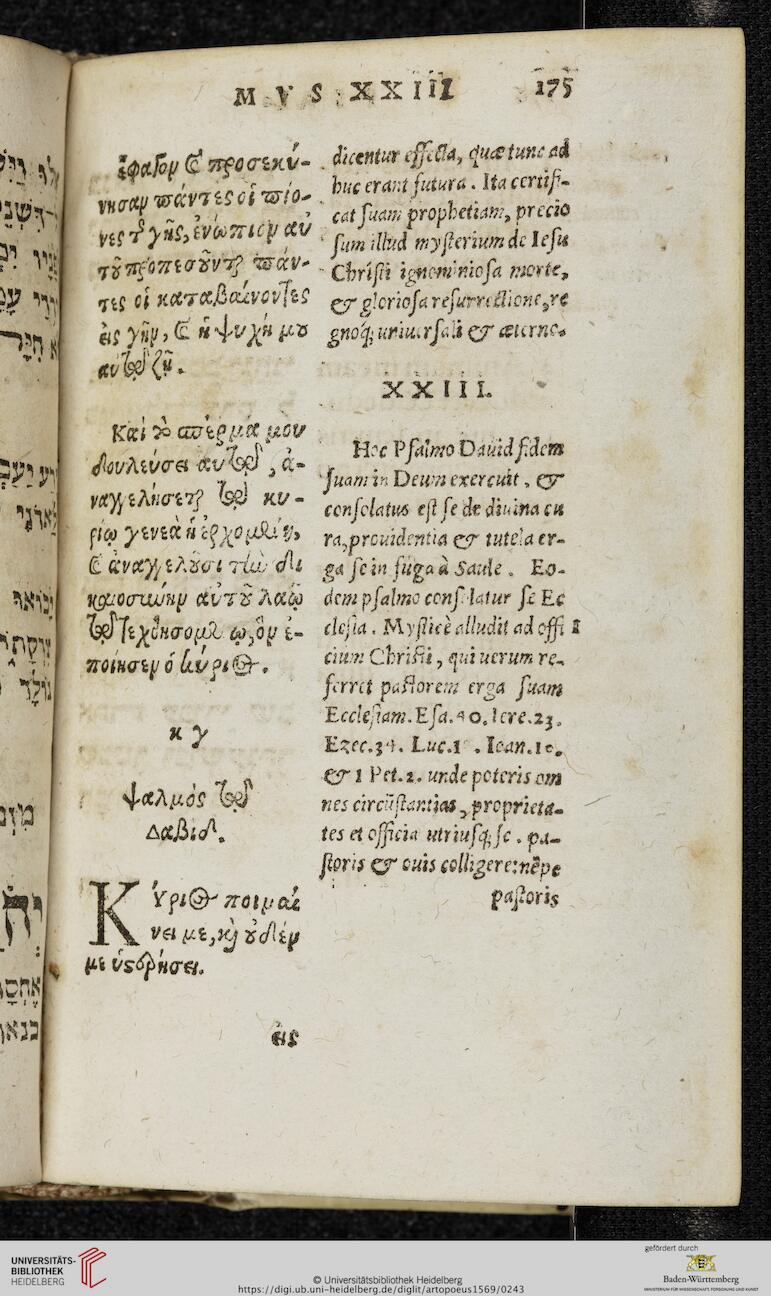 MVS XXIII 175
ἔφαγον & προσεκύ-
νησαν πάντες οἱ πίο-
νες τ͂ γῆς, ἐνώπιον αὐ
τȣ͂ προπεσȣ͂νται πάν-
τες οἱ καταβαίνοντες
εἰς γῆν, & ἡ ψυχή μȣ
αὐτῷ ζῇ.
Καὶ τὸ σπέρμα μου
δουλεύσει αὐτῷ, ἀ-
ναγγελήσεται τῷ κυ-
ρίῳ γενεὰ ἡ ἐρχομένη,
& ἀναγγελȣ͂σι τὴν δι
καιοσύνην αὐτȣ͂ λαῷ
τῷ τεχθησομένῳ, ὃν ἐ-
ποίησεν ὁ κύριος.
κγ
ψαλμός τῷ
Δαβίδ.
Κύριος ποιμαί
νει με, καὶ ȣ̓δέν
με ὑστερήσει.
εἰς
dicentur effecta, quæ tunc ad
huc erant futura. Ita certifi-
cat suam prophetiam, precio
sum illud mysterium de Iesu
Christi ignominiosa morte,
& gloriosa resurrectione, re
gnoq; uniuersali & æterno.
XXIII.
Hoc Psalmo Dauid fidem
suam in Deum exercuit, &
consolatus est se de diuina cu
ra, prouidentia & tutela er-
ga se in fuga à Saule. Eo-
dem psalmo consolatur se Ec
clesia. Mysticè alludit ad offi
cium Christi, qui uerum re-
ferret pastorem erga suam
Ecclesiam. Esa.40. Iere.23.
Ezec.34. Luc.1 . Ioan.10.
& 1 Pet.2. unde poteris om
nes circũstantias, proprieta-
tes et officia utriusq; sc. pa-
storis & ouis colligere: nẽpe
pastoris
UNIVERSITÄTS-
BIBLIOTHEK
HEIDELBERG
© Universitätsbibliothek Heidelberg
https://digi.ub.uni-heidelberg.de/diglit/artopoeus1569/0243
gefördert durch
Baden-Württemberg
MINISTERIUM FÜR WISSENSCHAFT, FORSCHUNG UND KUNST